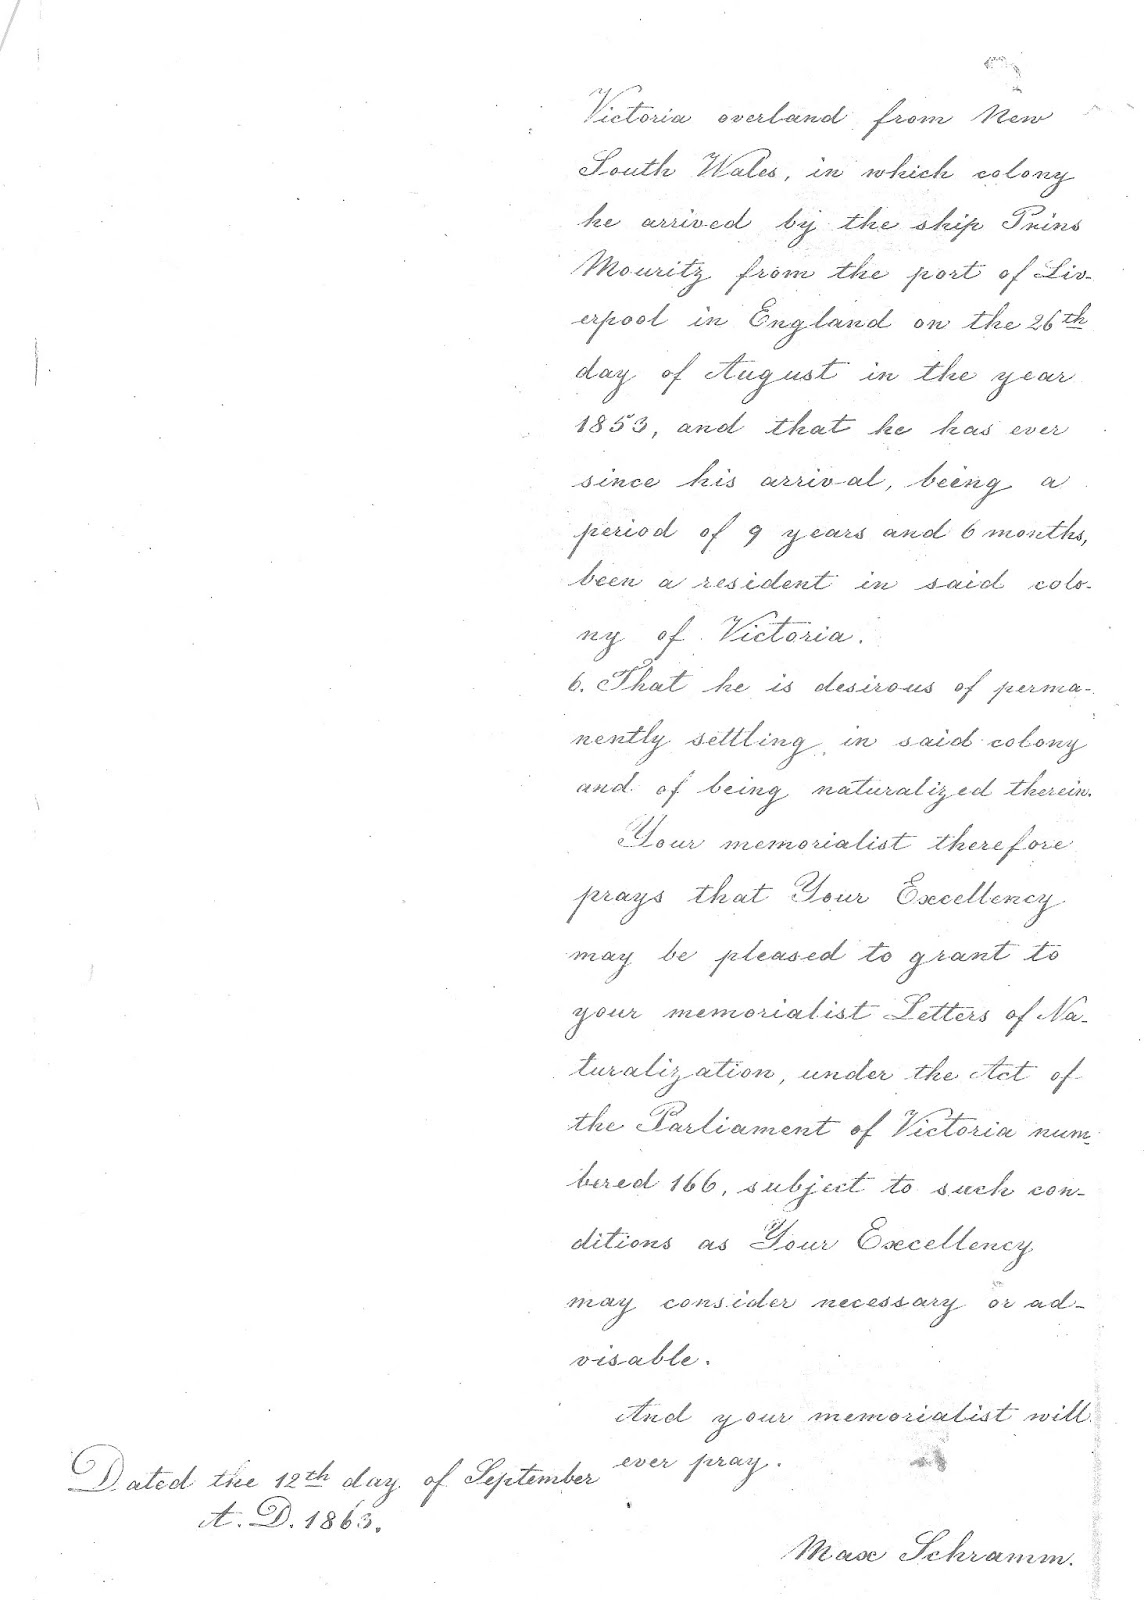 Victoria overland from New
South Wales, in which colony
he arrived by the ship Prins
Mouritz from the port of Liv-
erpool in England on the 26th
day of August in the year
1853, and that he has ever
since his arrival, being a
period of 9 years and 6 months,
been a resident in said colo-
ny of Victoria.
6. That he is desirous of perma-
nently settling in said colony
and of being naturalized therein.
Your memorialist therefore
prays that Your Excellency
may be pleased to grant to
your memorialist Letters of Na-
turalization, under the Act of
the Parliament of Victoria num-
bered 166, subject to such con-
ditions as Your Excellency
may consider necessary or ad-
visable.
And your memorialist will
ever pray.
Dated the 12th day of September
A. D. 1863.
Max Schramm.